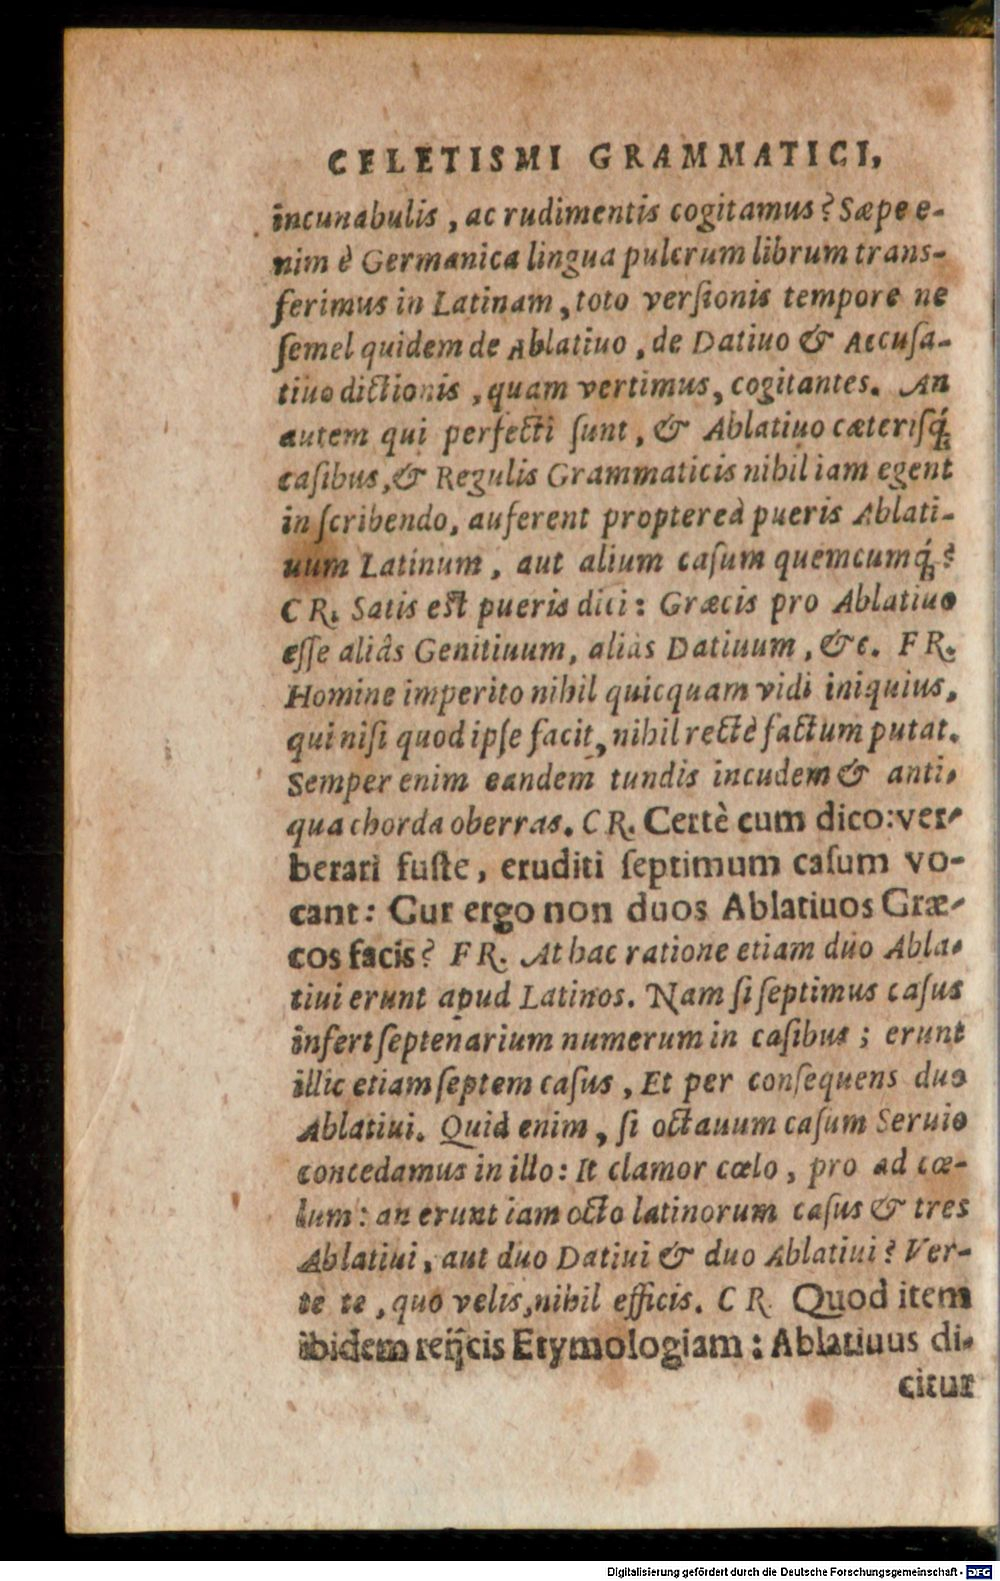 CELETISMI GRAMMATICI,
incunabulis, ac rudimentis cogitamus? Sæpe e-
nim è Germanica lingua pulcrum librum trans-
ferimus in Latinam, toto versionis tempore ne
semel quidem de Ablatiuo, de Datiuo & Accusa-
tiuo dictionis, quam vertimus, cogitantes. An
autem qui perfecti sunt, & Ablatiuo cæterisq́;
casibus, & Regulis Grammaticis nihil iam egent
in scribendo, auferent proptereà pueris Ablati-
uum Latinum, aut alium casum quemcumq́;?
CR. Satis est pueris dici: Græcis pro Ablatiuo
esse aliâs Genitiuum, aliâs Datiuum, &c. FR.
Homine imperito nihil quicquam vidi iniquius,
qui nisi quod ipse facit, nihil rectè factum putat.
Semper enim eandem tundis incudem & anti-
qua chorda oberras. CR. Certè cum dico: ver-
berari fuste, eruditi septimum casum vo-
cant: Cur ergo non duos Ablatiuos Græ-
cos facis? FR. At hac ratione etiam duo Abla-
tiui erunt apud Latinos. Nam si septimus casus
infert septenarium numerum in casibus; erunt
illic etiam septem casus, Et per consequens duo
Ablatiui. Quid enim, si octauum casum Seruio
concedamus in illo: It clamor cœlo, pro ad cœ-
lum: an erunt iam octo latinorum casus & tres
Ablatiui, aut duo Datiui & duo Ablatiui? Ver-
te te, quo velis, nihil efficis. CR. Quod item
ibidem reijcis Etymologiam: Ablatiuus di-
citur
Digitalisierung gefördert durch die Deutsche Forschungsgemeinschaft - DFG